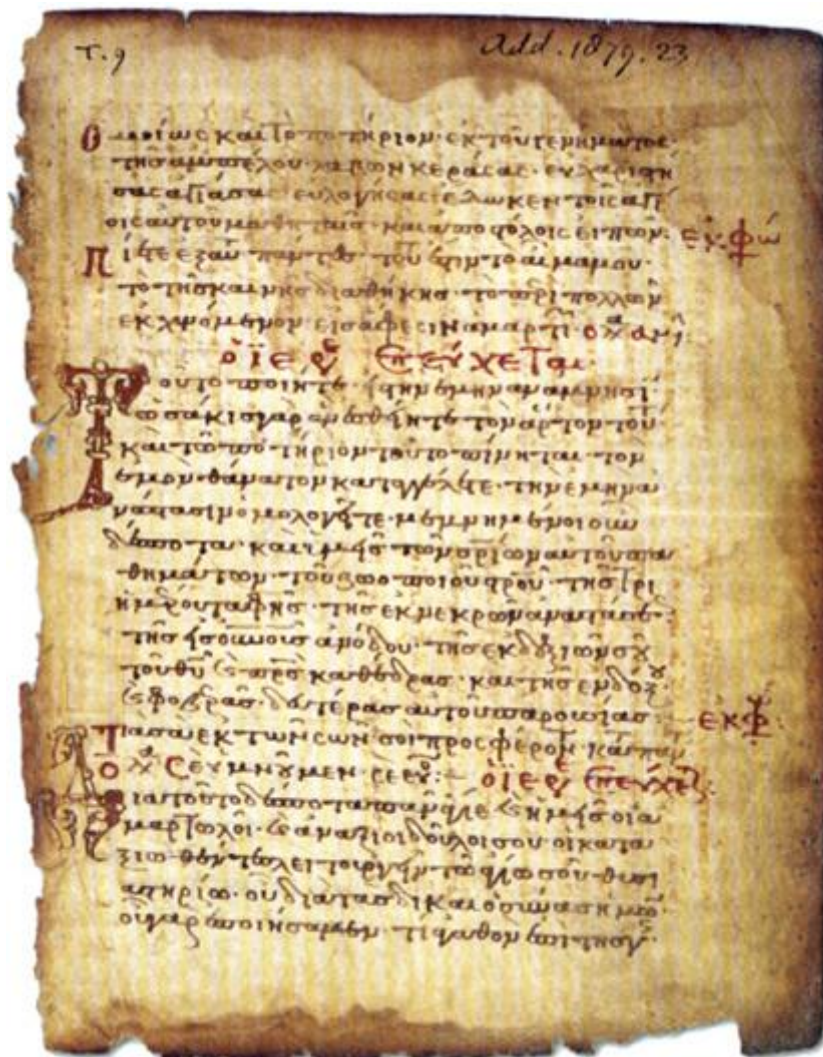 T. 9
Add. 1879. 23
Ὁμοίως καὶ τὸ ποτήριον· ἐκ τοῦ γενήματος·
τῆς ἀμπέλου· λαβὼν κεράσας· εὐχαριστή
σας ἁγιάσας· εὐλογήσας· ἔδωκεν τοῖς ἁγί
οις αὐτοῦ μαθηταῖς καὶ ἀποστόλοις εἰπών· ἐκφώ
Πίετε ἐξ αὐτοῦ πάντες· τοῦτό ἐστιν τὸ αἷμά μου·
τὸ τῆς καινῆς διαθήκης· τὸ πολλῶν
ἐκχυνόμενον· εἰς ἄφεσιν ἁμαρτι· ὁ λα ἀμή
ὁ ἱερεὺ ἐπεύχεται
Τοῦτο ποιεῖτε· ἀνάμνησι
ὡσάκις γὰρ ἂν ἐσθίητε τὸν ἄρτον τοῦ
καὶ τὸ ποτήριον τοῦτο πίνητε· τὸν
ἐμὸν θάνατον καταγγέλετε· τὴν ἐμὴν ἀ
νάστασιν ὁμολογεῖτε· μεμνημένοι οὖν
δέσποτα· καὶ ἡμεῖς τῶν αὐτοῦ πα
θημάτων· τοῦ ζωοποιοῦ στρου· τῆς τρι
ημέρου ταφῆς· τῆς ἐκ νεκρῶν ἀναστάσε
τῆς εἰς οὐνοὺς ἀνόδου· τῆς ἐκ δεξιῶν σου
τοῦ θυ καὶ πρς καθέδρας· καὶ τῆς ἐνδόξου
καὶ φοβερᾶς δευτέρας αὐτοῦ παρουσίας· ἐκφ
Τὰ σὰ ἐκ τῶν σῶν σοὶ προσφέρον
ὁ λα Σὲ ὑμνοῦμεν· ὁ ἱερεὺ ἐπεύχετ
Διὰ τοῦτο δέσποτα πανάγιε καὶ ἡμεῖς οἱ ἁ
μαρτωλοὶ· καὶ ἀνάξιοι δοῦλοί σου· οἱ κατα
ξιωθέντες λειτουργεῖν τῷ ἁγίῳ σου θυσι
αστηρίῳ· οὐ διὰ τὰς δικαιοσύνας ἡμῶ
οὐ γὰρ ἐποιήσαμεν· τι ἀγαθὸν ἐπὶ τῆς γ